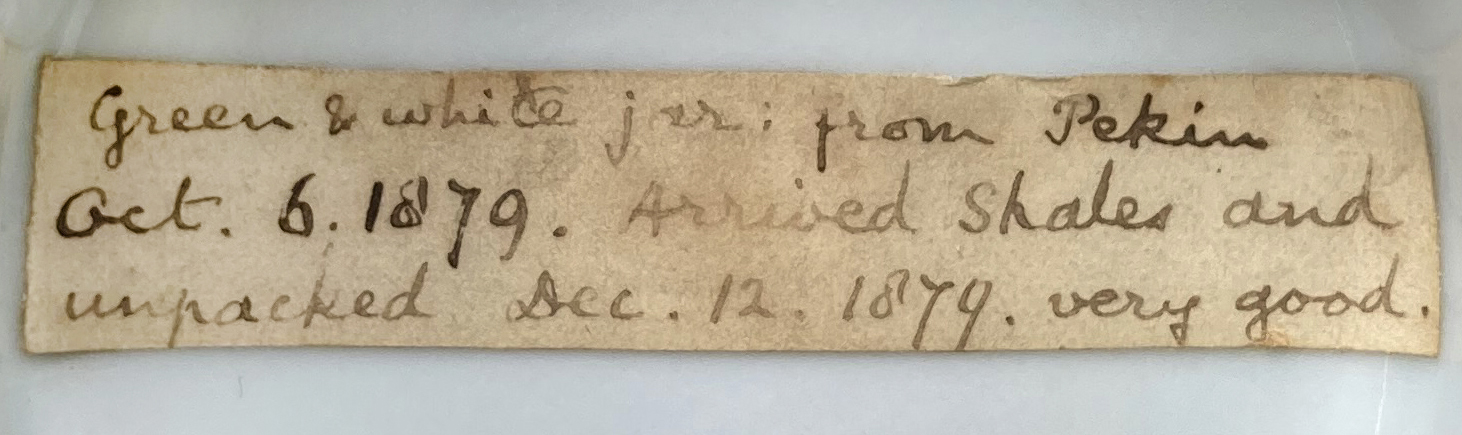 Green & white jar: from Pekin
Oct. 6. 1879. Arrived Shales and
unpacked Dec. 12. 1879. very good.